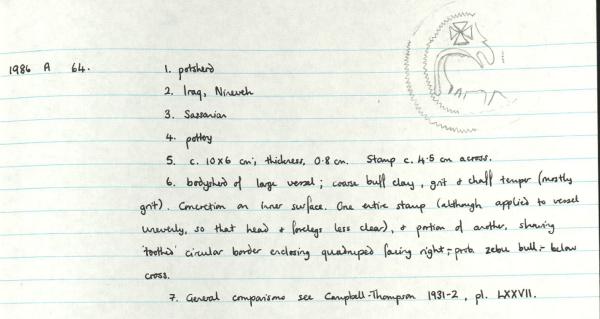 1986 A 64.
1. potsherd
2. Iraq, Nineveh
3. Sassanian
4. pottery
5. c. 10x6 cm; thickness, 0.8 cm. Stamp c. 4.5 cm across.
6. bodysherd of large vessel; coarse buff clay, grit & chaff temper (mostly
grit). Concretion on inner surface. One entire stamp (although applied to vessel
unevenly, so that head & forelegs less clear), & portion of another, showing
'toothed' circular border enclosing quadruped facing right; - prob. zebu bull; - below
cross.
7. General comparisons see Campbell-Thompson 1931-2, pl. LXXVII.